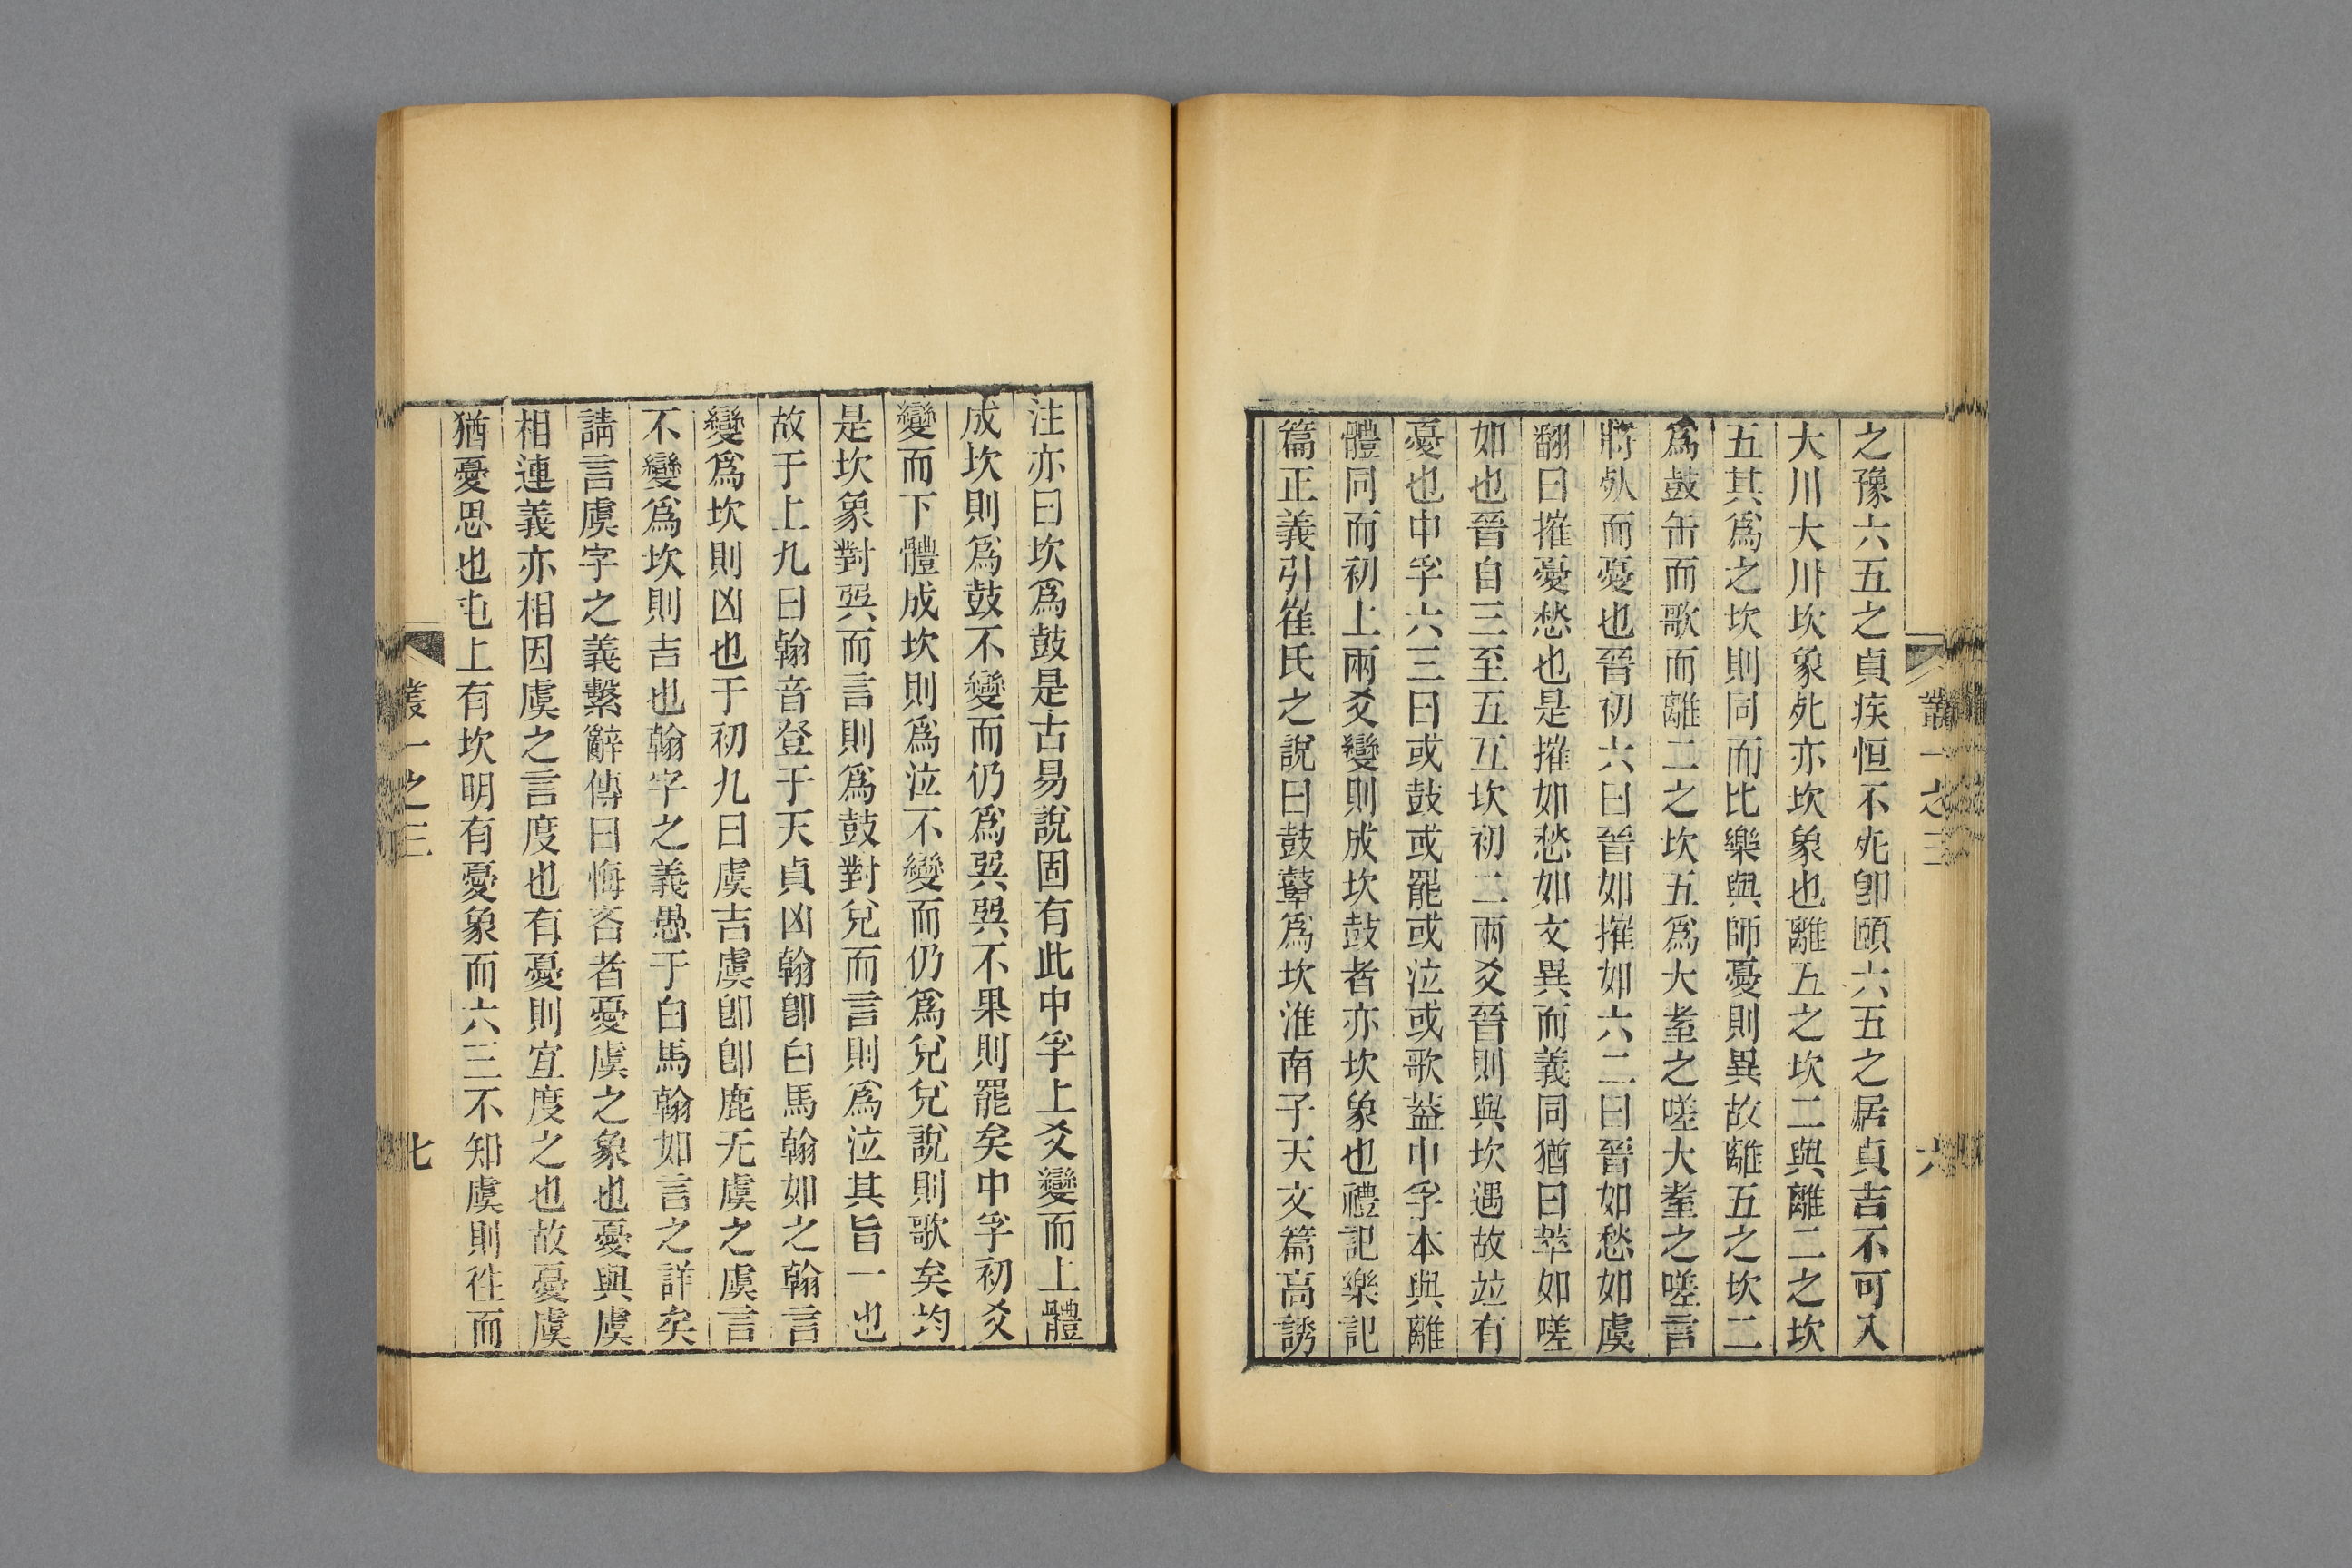 叢一之三
六
之豫六五之貞疾恒不死卽頤六五之居貞吉不可入
大川大川坎象死亦坎象也離五之坎二與離二之坎
五其爲之坎則同而比樂與師憂則異故離五之坎二
爲鼓缶而歌而離二之坎五爲大耋之嗟大耋之嗟言
將死而憂也晉初六曰晉如摧如六二曰晉如愁如虞
翻曰摧憂愁也是摧如愁如文異而義同猶曰萃如嗟
如也晉自三至五互坎初二兩爻晉則與坎遇故竝有
憂也中孚六三曰或鼓或罷或泣或歌葢中孚本與離
體同而初上兩爻變則成坎鼓者亦坎象也禮記樂記
篇正義引崔氏之說曰鼓鼙爲坎淮南子天文篇高誘
注亦曰坎爲鼓是古易說固有此中孚上爻變而上體
成坎則爲鼓不變而仍爲巽巽不果則罷矣中孚初爻
變而下體成坎則爲泣不變而仍爲兌兌說則歌矣均
是坎象對巽而言則爲鼓對兌而言則爲泣其旨一也
故于上九曰翰音登于天貞凶翰卽白馬翰如之翰言
變爲坎則凶也于初九曰虞吉虞卽卽鹿无虞之虞言
不變爲坎則吉也翰字之義愚于白馬翰如言之詳矣
請言虞字之義繫辭傳曰悔吝者憂虞之象也憂與虞
相連義亦相因虞之言度也有憂則宜度之也故憂虞
猶憂思也屯上有坎明有憂象而六三不知虞則徃而
叢一之三
七